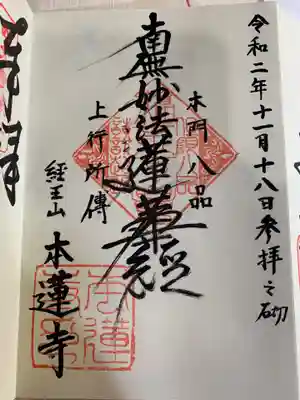 令和二年十一月十八日参拝之砌
本門八品
南無妙法蓮華経
上行所傳
経王山
本蓮寺